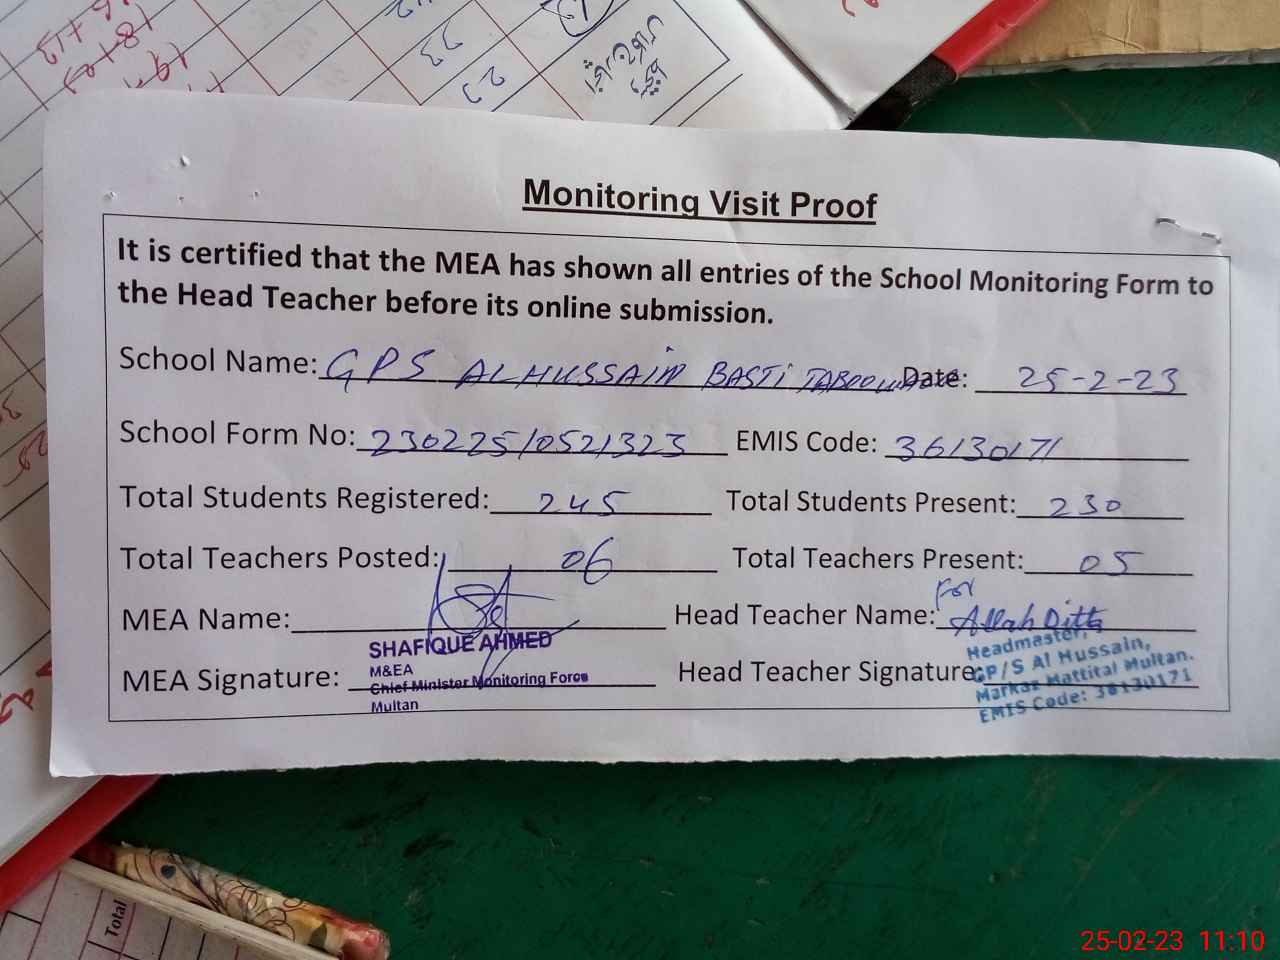 18+
23
23
Monitoring Visit Proof
It is certified that the MEA has shown all entries of the School Monitoring Form to
the Head Teacher before its online submission.
School Name: GPS ALHUSSAIN BASTI Date: 25-2-23
School Form No: 23022510521323 EMIS Code: 36130171
Total Students Registered: 245 Total Students Present: 230
Total Teachers Posted: 06 Total Teachers Present: 05
For
MEA Name: Head Teacher Name: Allah Ditta
SHAFIQUE AHMED
M&EA
Chief Minister Monitoring Force
Multan
MEA Signature: Head Teacher Signature:
Headmaster,
GP/S Al Hussain,
Markaz Mattital Multan.
EMIS Code: 36130171
Total
25-02-23 11:10